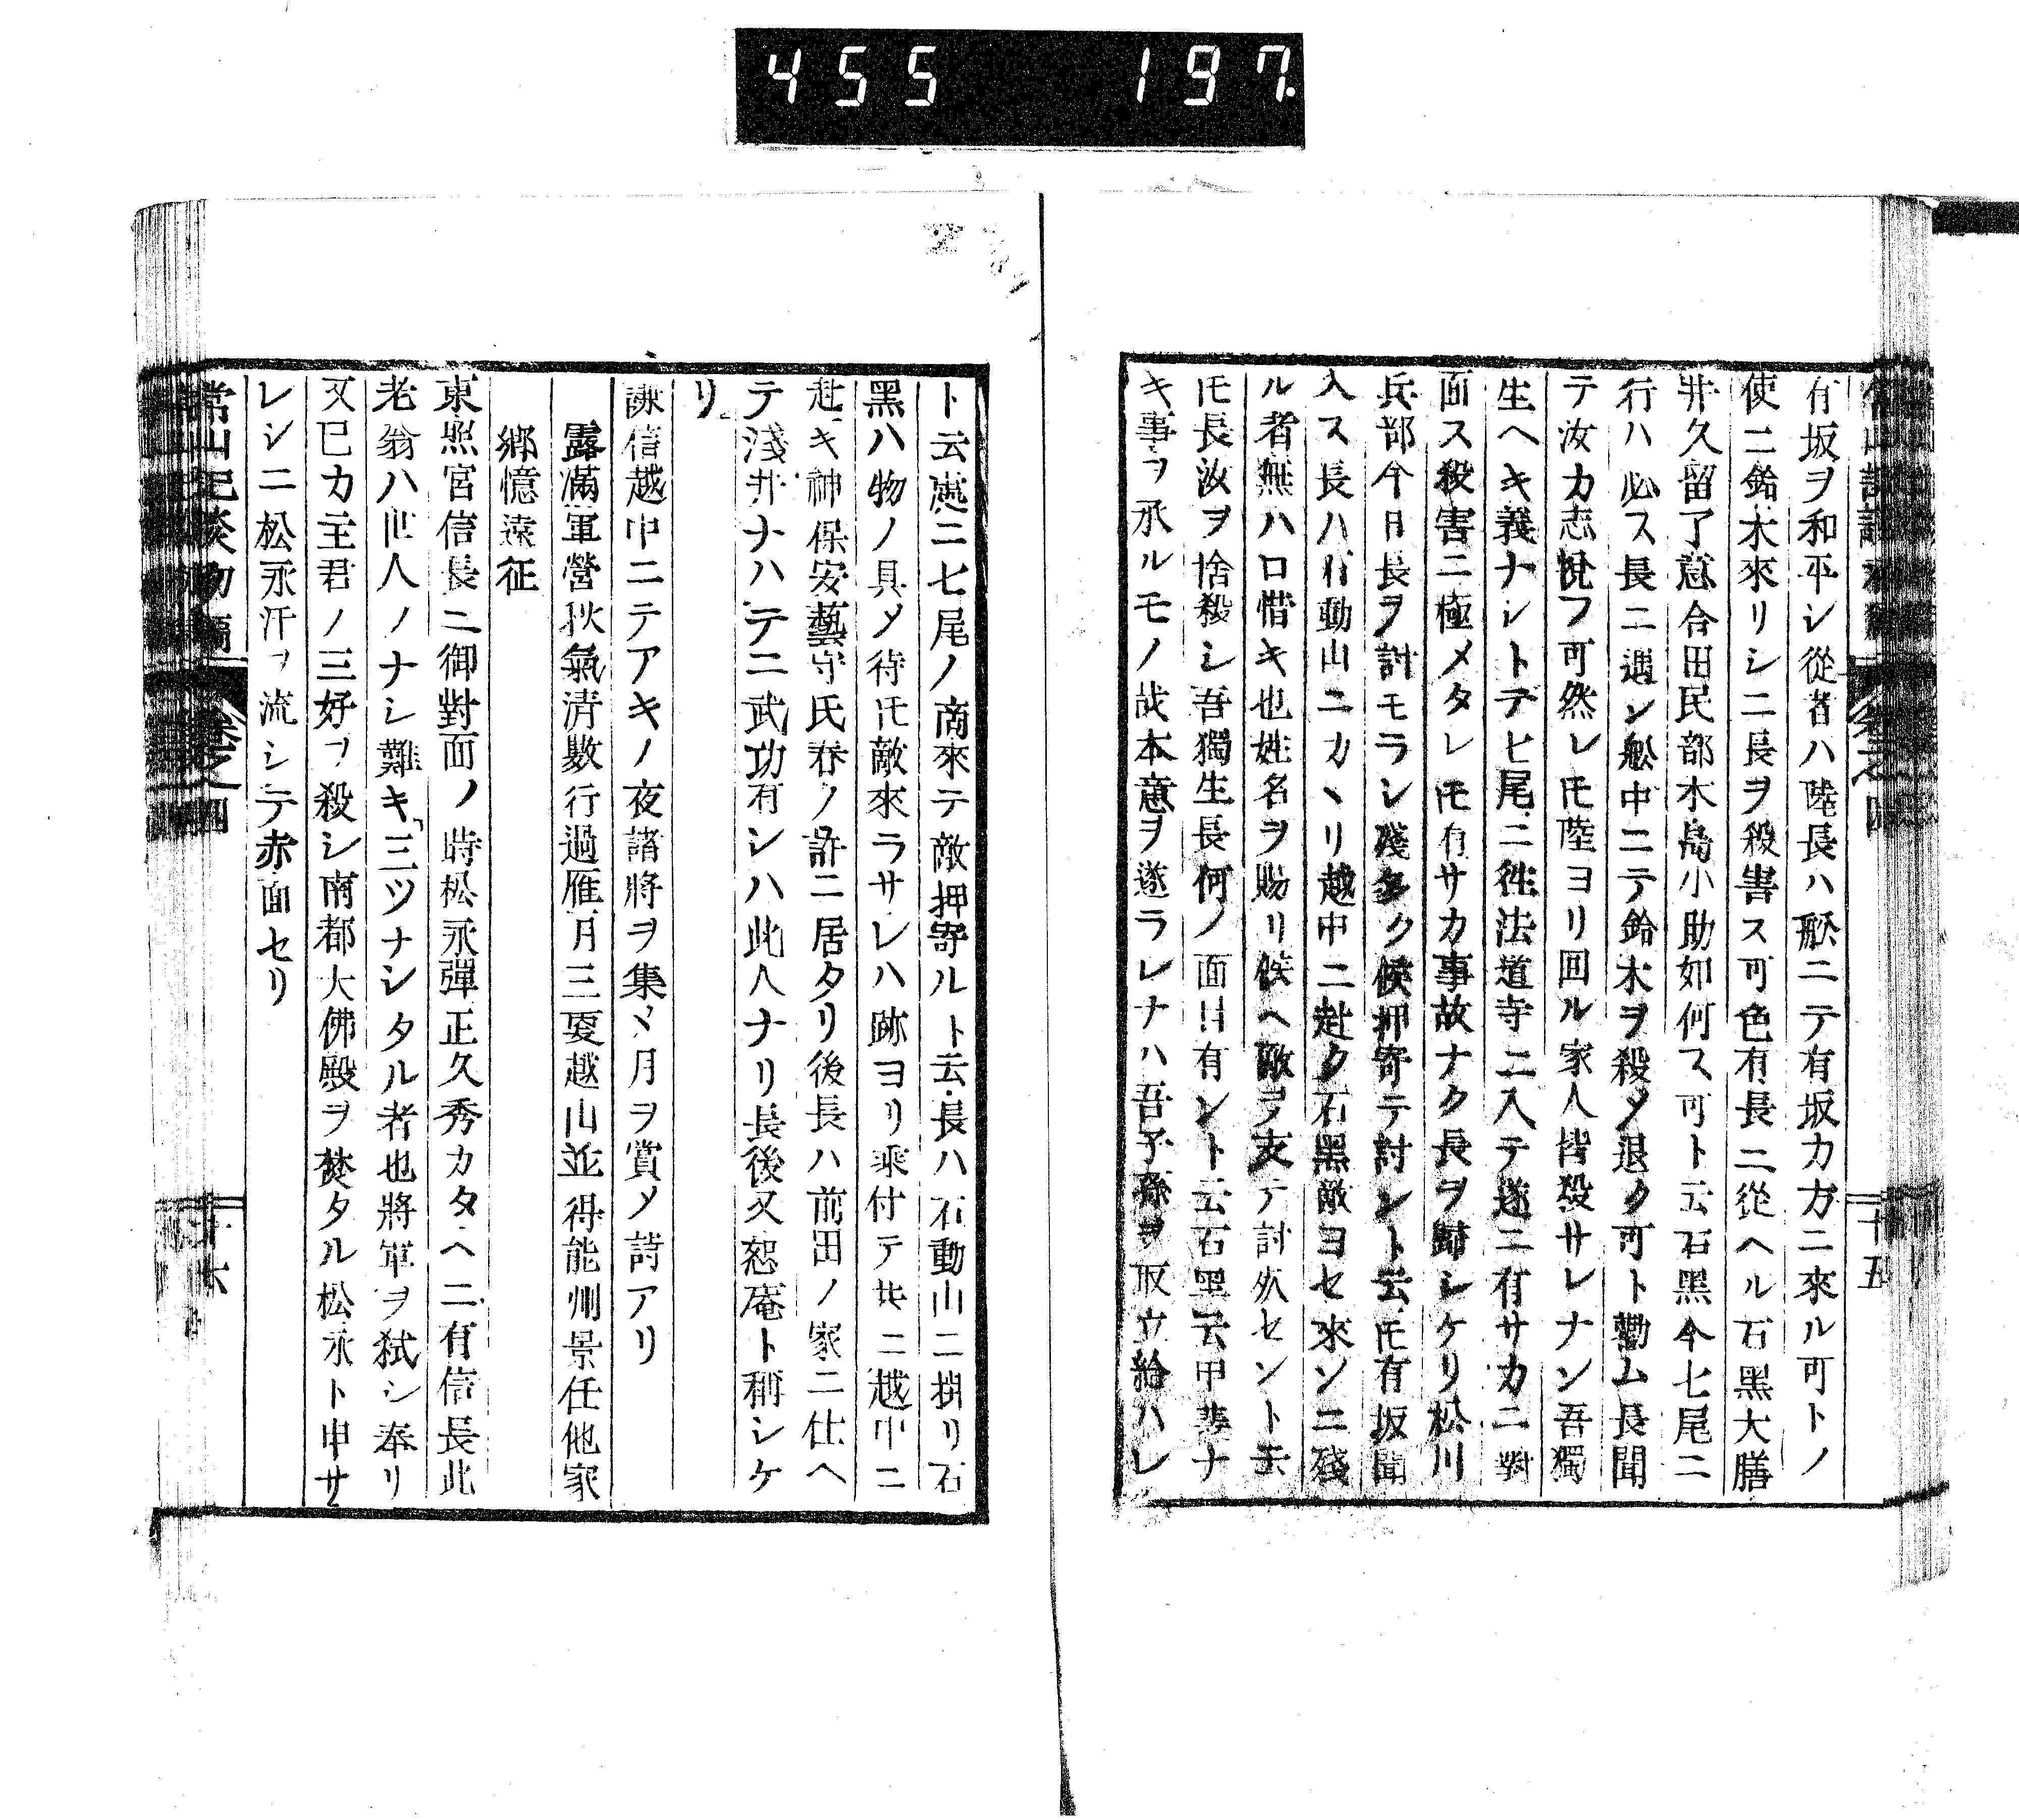 455 197
有坂ヲ和平シ從者ハ陸長ハ舩ニテ有坂カ方ニ來ル可トノ
使ニ鈴木來リシニ長ヲ殺害ス可色有長ニ從ヘル石黒大膳
井久留了意合田民部木島小助如何ス可ト云石黒今七尾ニ
行ハ必ス長ニ遇ン舩中ニテ鈴木ヲ殺メ退ク可ト勸ム長聞
テ汝カ志悅フ可然レ𪜈陸ヨリ回ル家人皆殺サレナン吾獨
生ヘキ義ナシトテ七尾ニ徃法道寺ニ入テ遂ニ有サカニ對
面ス殺害ニ極メタレ𪜈有サカ事故ナク長ヲ歸シケリ松川
兵部今日長ヲ討モラシ殘多ク候押寄テ討ント云𪜈有坂聞
入ス長ハ石動山ニカヽリ越中ニ赴ク石黒敵ヨセ來ンニ殘
ル者無ハ口惜キ也姓名ヲ賜リ候ヘ敵ヲ支テ討死セント云
𪜈長汝ヲ捨殺シ吾獨生長何ノ面目有ント云石黒云甲斐ナ
キ事ヲ承ルモノ哉本意ヲ遂ラレナハ吾子孫ヲ取立給ハレ
十五
ト云處ニ七尾ノ商來テ敵押寄ルト云長ハ石動山ニ掛リ石
黒ハ物ノ具メ待𪜈敵來ラサレハ跡ヨリ乘付テ共ニ越中ニ
赴キ神保安藝守氏春ノ許ニ居タリ後長ハ前田ノ家ニ仕ヘ
テ淺井ナハテニ武功有シハ此人ナリ長後又恕庵ト稱シケ
リ
謙信越中ニテアキノ夜諸將ヲ集メ月ヲ賞メ詩アリ
露滿軍營秋氣清數行過雁月三更越山並得能州景任他家
郷憶遠征
東照宮信長ニ御對面ノ時松永彈正久秀カタヘニ有信長此
老翁ハ世人ノナシ難キ三ツナシタル者也將軍ヲ弑シ奉リ
又己カ主君ノ三好ヲ殺シ南都大佛殿ヲ焚タル松永ト申サ
レシニ松永汗ヲ流シテ赤面セリ
常山紀談 卷之四
十六